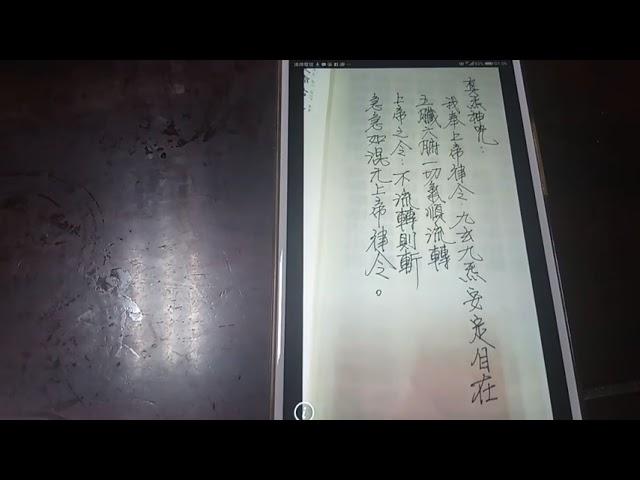 炁神咒：
我奉上帝律令九玄九炁安定自在
五臟六腑一切氣順流轉
上帝之令：不流轉則斬
急急如混元上帝律令。